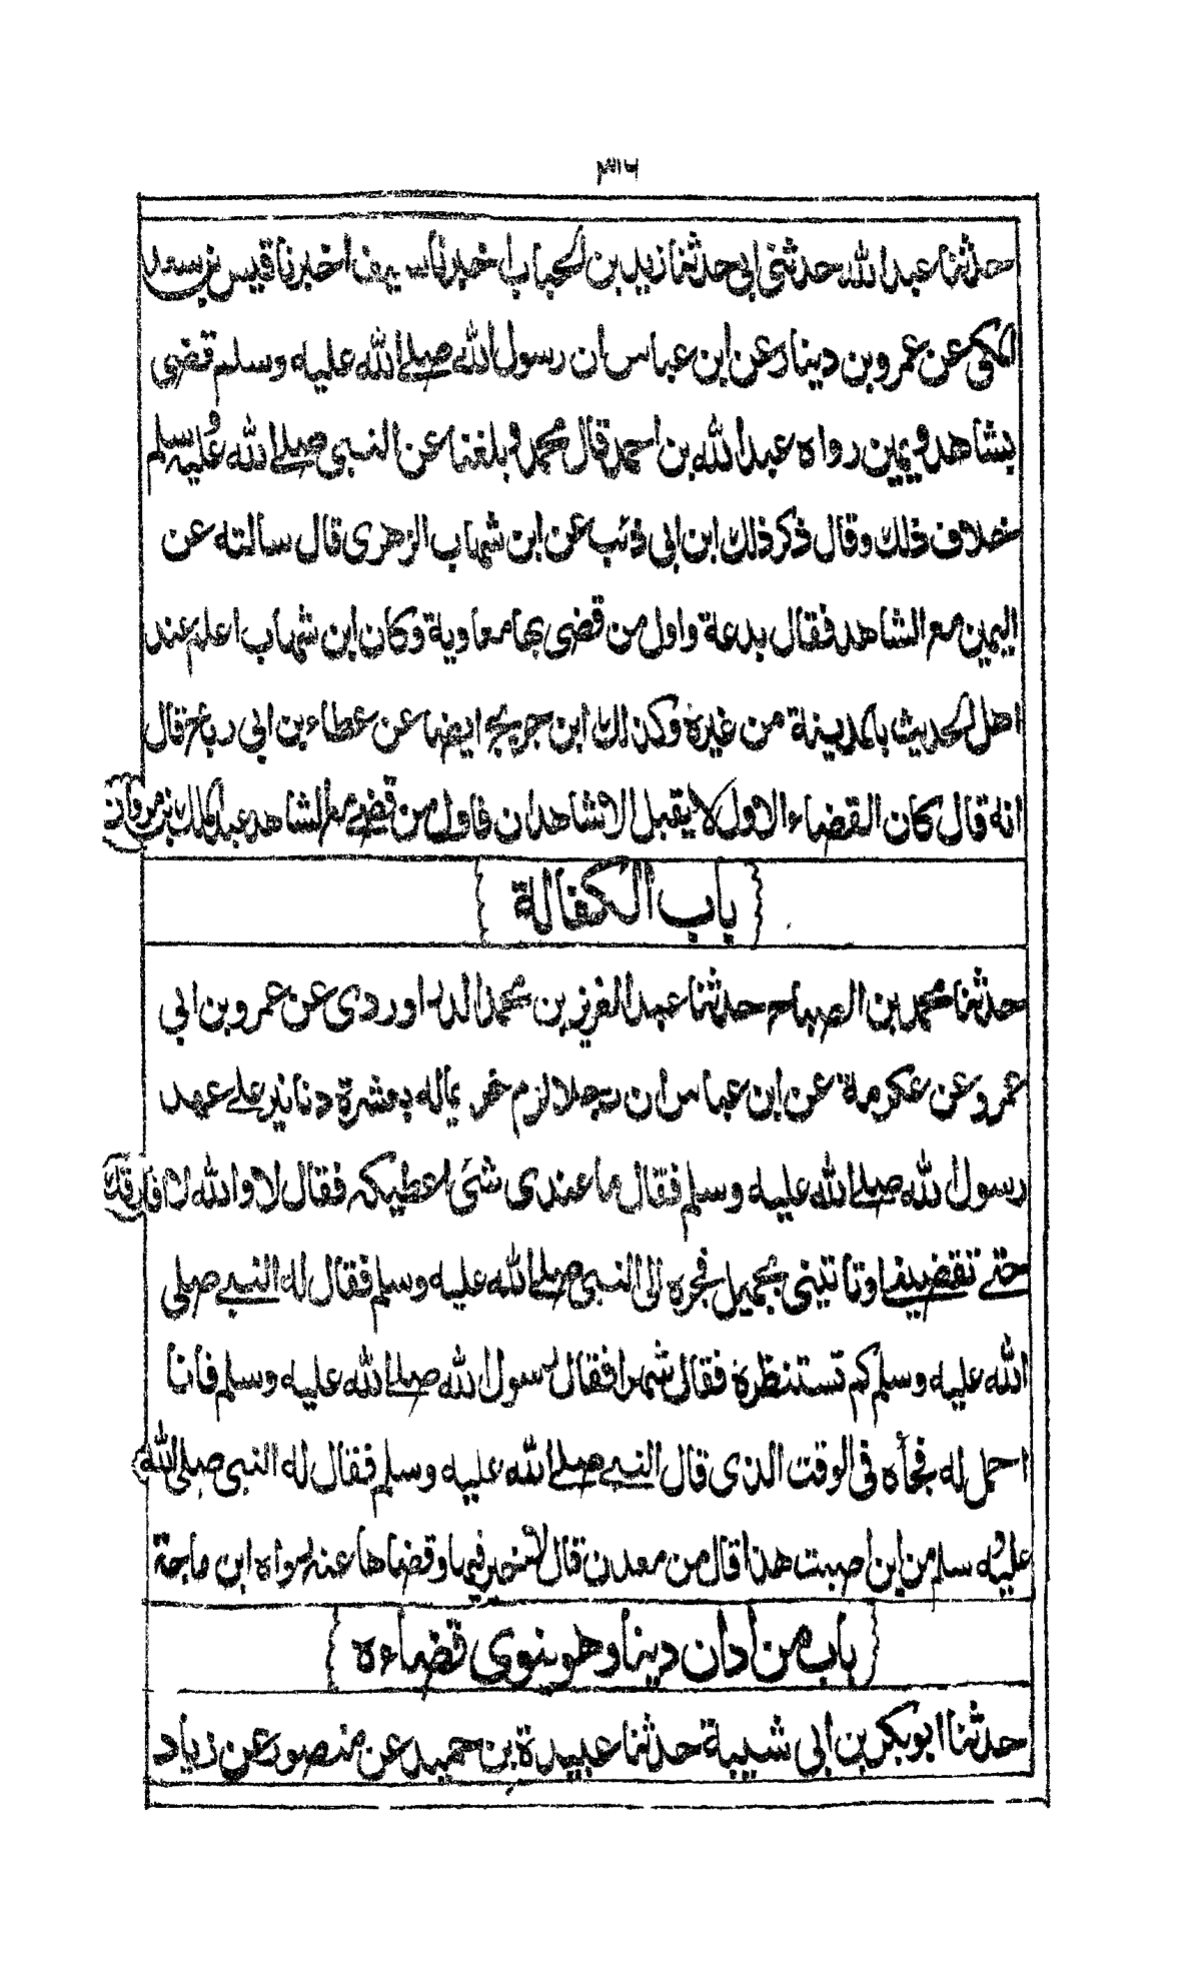 ٣١٦
حدثنا عبد الله حدثني ابي حدثنا زيد بن الحباب اخبرنا سيف اخبرنا قيس بن سعد
المكي عن عمرو بن دينار عن ابن عباس ان رسول الله صلے الله عليه وسلم قضى
بشاهد ويمين رواه عبد الله بن احمد قال محمد وبلغنا عن النبي صلے الله عليه وسلم
خلاف ذلك وقال ذكر ذلك ابن ابي ذئب عن ابن شهاب الزهري قال سالته عن
اليمين مع الشاهد فقال بدعة واول من قضى بها معاوية وكان ابن شهاب اعلم عند
اهل الحديث بالمدينة من غيره وكذلك ابن جريج ايضا عن عطاء بن ابي رباح قال
انه قال كان القضاء الاول لا يقبل الا شاهدان فاول من قضے مع الشاهد عبد الملك بن مروان
باب الكفالة
حدثنا محمد بن الصباح حدثنا عبد العزيز بن محمد الدراوردي عن عمرو بن ابي
عمرو عن عكرمة عن ابن عباس ان رجلا لزم غريما له بعشرة دنانير علے عهد
رسول الله صلے الله عليه وسلم فقال ما عندي شئ اعطيكه فقال لا والله لا فارقك
حتے تقضيني او تاتيني بحميل فجره الى النبي صلے الله عليه وسلم فقال له النبے صلى
الله عليه وسلم كم تستنظره فقال شهرا فقال رسول الله صلے الله عليه وسلم فانا
احمل له فجأه في الوقت الذي قال النبے صلے الله عليه وسلم فقال له النبي صلى الله
عليه وسلم من اين اصبت هذا قال من معدن قال لا خير فيها وقضاها عنه رواه ابن ماجة
باب من ادان دينا وهو ينوي قضاءه
حدثنا ابو بكر بن ابي شيبة حدثنا عبيدة بن حميد عن منصور عن زياد